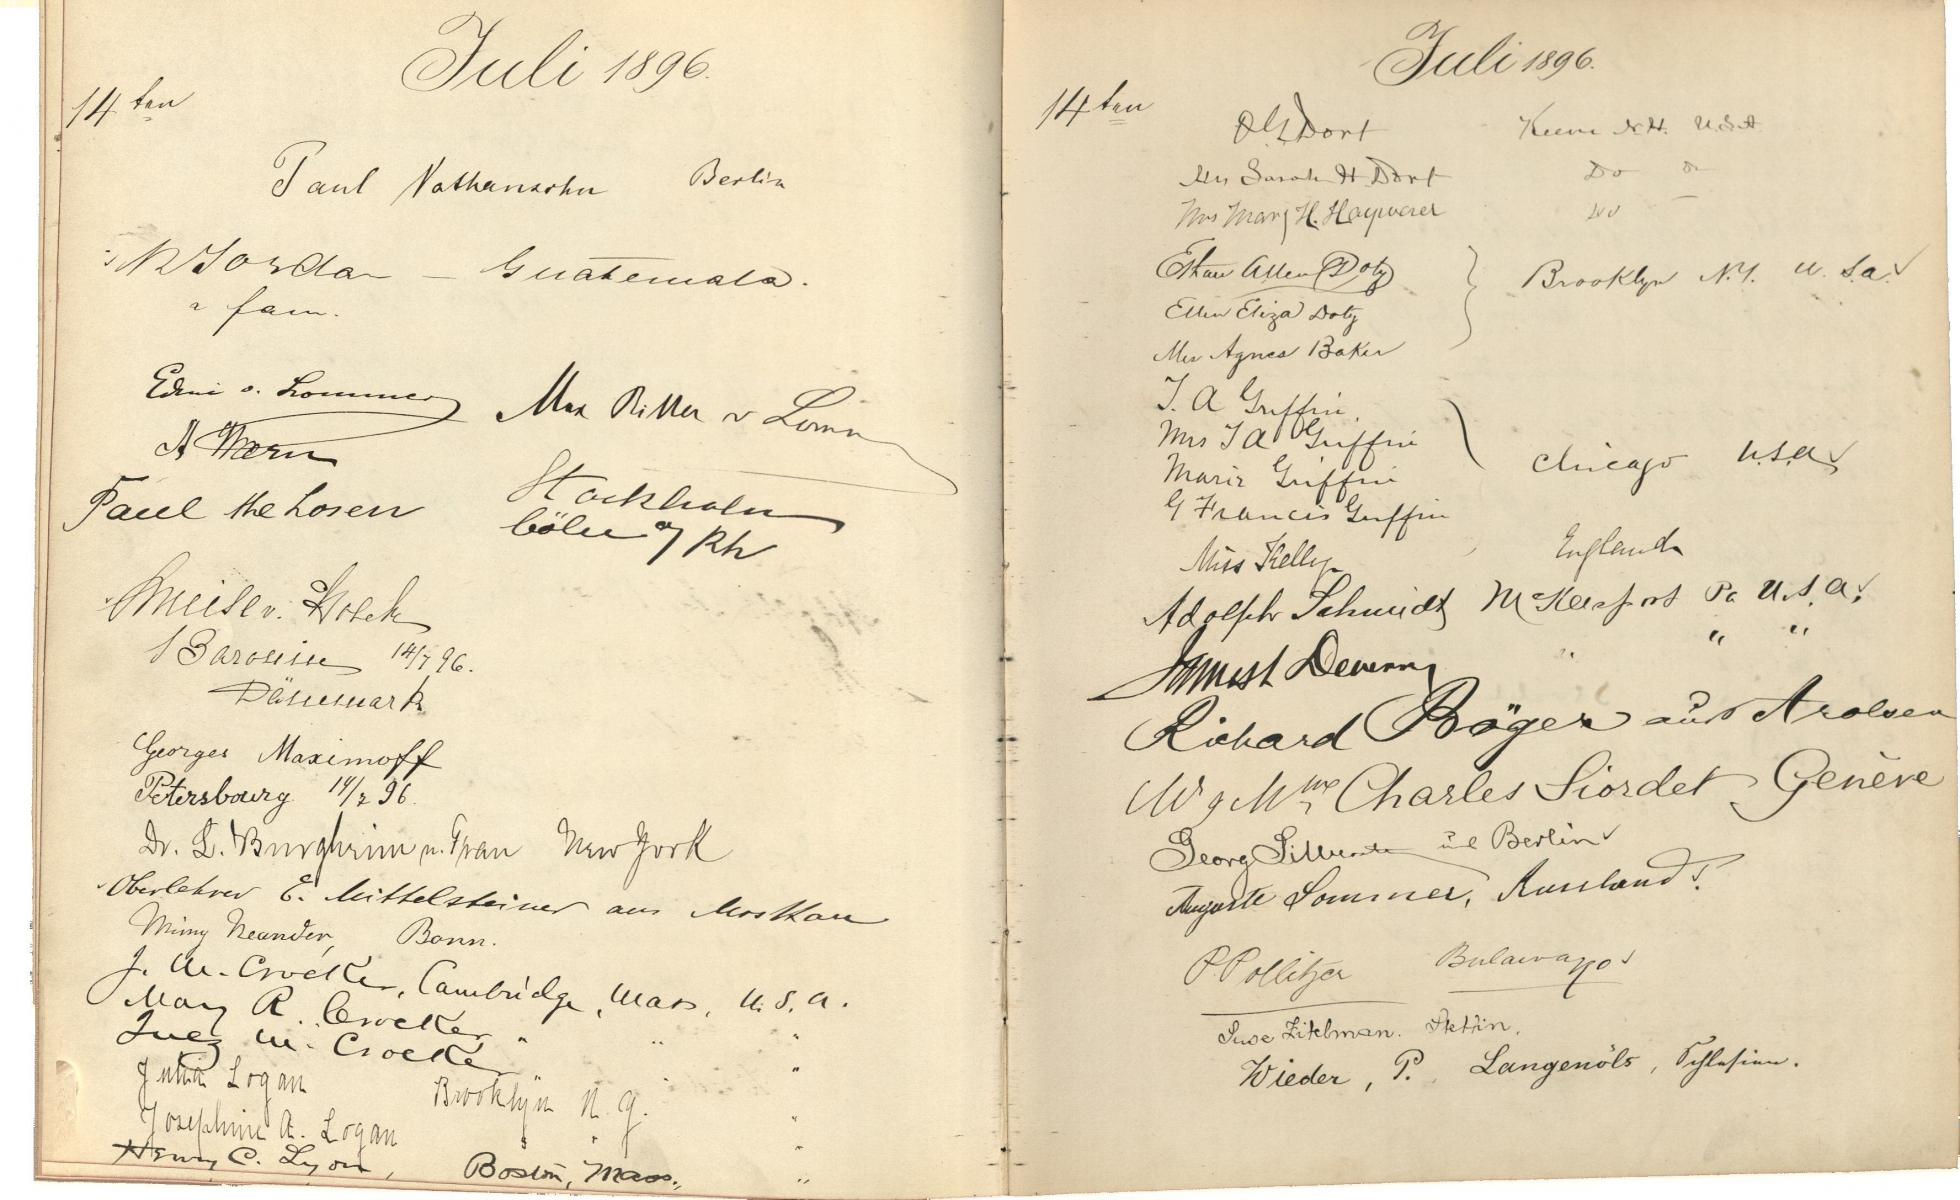 Juli 1896.
14 ten
Paul Nathansohn Berlin
Jordan – Guatemala.
fam.
Edmi v. Sommer Max Ritter v
A Wærn Stockholm
Paul the Losen Cöln a/Rh
v. Holck
Baronin 14/7 96.
Dänemark
Georges Maximoff
Petersbourg 14/7 96.
Dr. L. Burgheim u. Frau New York
Oberlehrer E. Mittelsteiner aus Moskau
Mimy Neander, Bonn.
J. M. Crocker, Cambridge, Mass, U.S.A.
Mary R. Crocker " " "
Inez M. Crocker "
Julia Logan Brooklyn N.Y.
Josephine A. Logan " " "
Henry C. Lyon, Boston, Mass., "
Juli 1896.
14 ten
Dort Keene N.H. U.S.A.
Mrs Sarah H. Dort Do Do
Mrs Mary H. Do –
Ethan Allen Doty Brooklyn N.Y. U.S.A.
Ellen Eliza Doty
Mrs Agnes Baker
T. A Griffin.
Mrs T A Griffin Chicago U.S.A
Marie Griffin
G Francis Griffin
Miss Kelly England
Adolph Schmidt McKeesport Pa U.S.A.
" " "
Richard Böger aus Arolsen
Mr & Mme Charles Siordet Genève
Georg Berlin
Auguste Sommer, Russland.
P. Pollitzer Bulawayo
Suse Zitelman. Stettin.
Wieder, P. Langenöls, Schlesien.